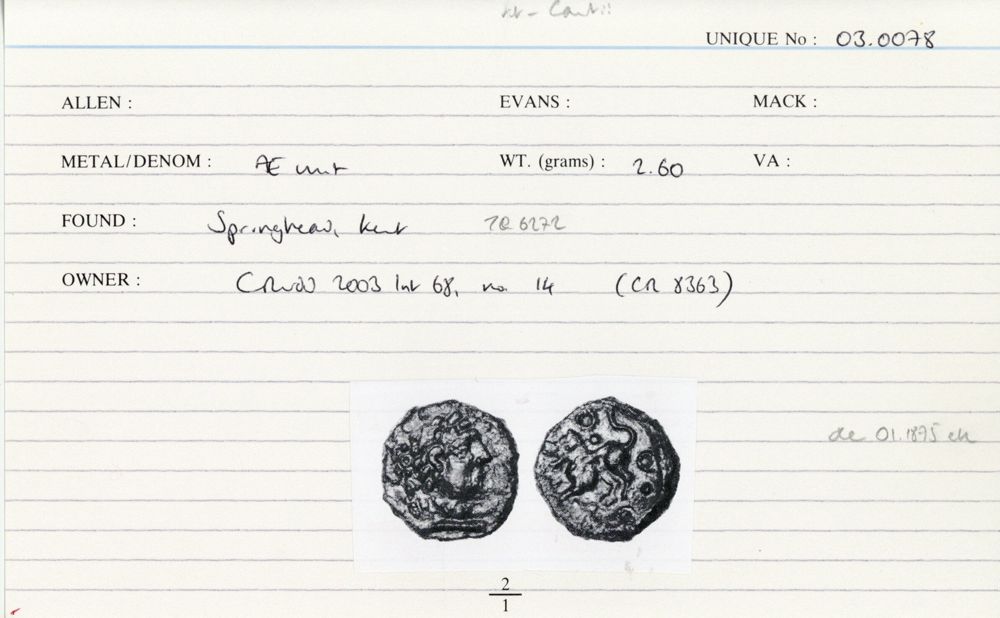 UNIQUE No : 03.0078
ALLEN : EVANS : MACK :
METAL/DENOM : Æ unit WT. (grams) : 2.60 VA :
FOUND : Springhead, Kent TQ 6272
OWNER : 2003 list 68, no. 14 (CR 8363)
01.1875
2
1